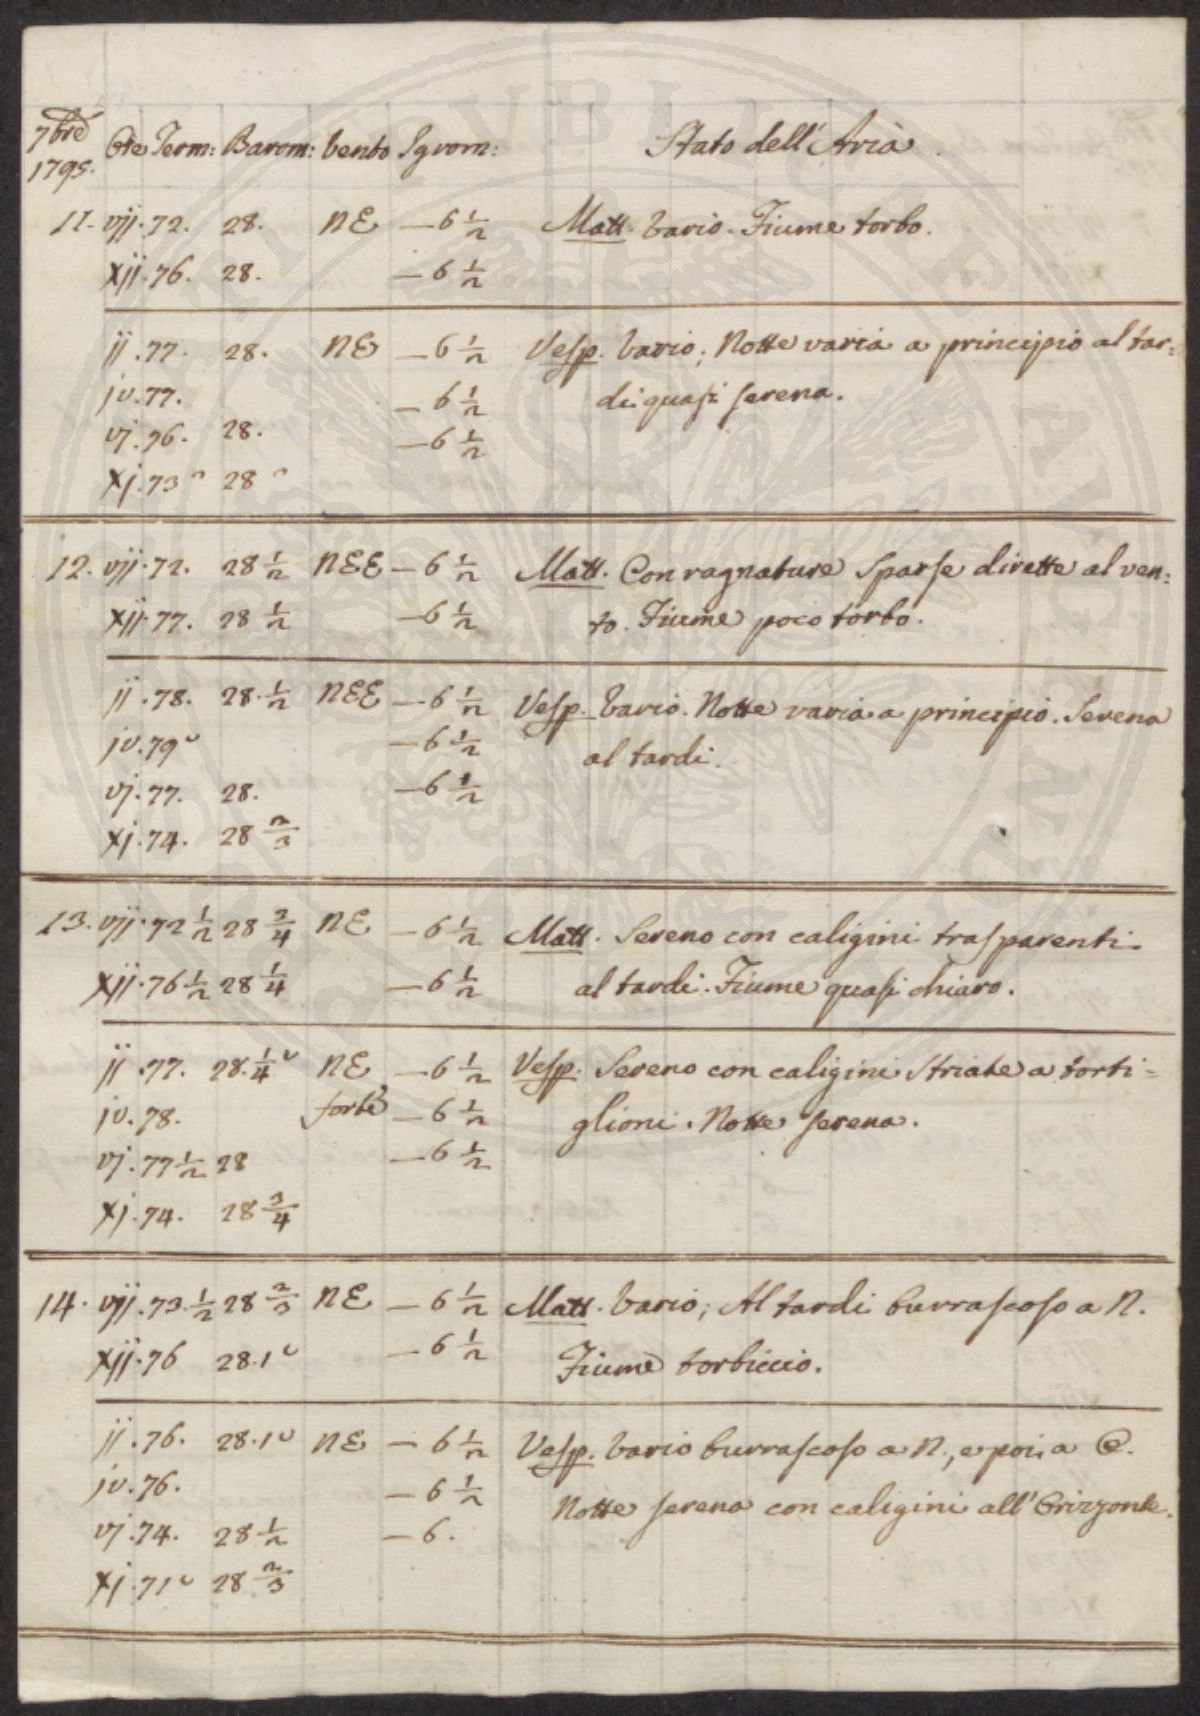 7bre
1795.
Ore Term: Barom: Vento Igrom: Stato dell'Aria.
11. vij. 72. 28. NE — 6 1/2 Matt. Vario. Fiume torbo.
xij. 76. 28. — 6 1/2
ij. 77. 28. NE — 6 1/2 Vesp. Vario; Notte varia a principio al tar=
iv. 77. — 6 1/2 di quasi serena.
vj. 76. 28. — 6 1/2
xj. 73 ^ 28 ^
12. vij. 72. 28 1/2 NEE — 6 1/2 Matt. Con ragnature sparse dirette al ven=
xij. 77. 28 1/2 — 6 1/2 to. Fiume poco torbo.
ij. 78. 28. 1/2 NEE — 6 1/2 Vesp. Vario. Notte varia a principio. Serena
iv. 79 ˘ — 6 1/2 al tardi.
vj. 77. 28. — 6 1/2
xj. 74. 28 2/3
13. vij. 72 1/2 28 3/4 NE — 6 1/2 Matt. Sereno con caligini trasparenti
xij. 76 1/2 28 1/4 — 6 1/2 al tardi. Fiume quasi chiaro.
ij. 77. 28. 1/4 ˘ NE — 6 1/2 Vesp. Sereno con caligini striate a torti=
iv. 78. forte — 6 1/2 glioni. Notte serena.
vj. 77 1/2 28 — 6 1/2
xj. 74. 28 3/4
14. vij. 73. 1/2 28 2/3 NE — 6 1/2 Matt. Vario; Al tardi burrascoso a N.
xij. 76 28. 1 ˘ — 6 1/2 Fiume torbiccio.
ij. 76. 28. 1 ˘ NE — 6 1/2 Vesp. Vario burrascoso a N., e poi a O.
iv. 76. — 6 1/2 Notte serena con caligini all'Orizzonte.
vj. 74. 28 1/2 — 6.
xj. 71 ˘ 28 2/3